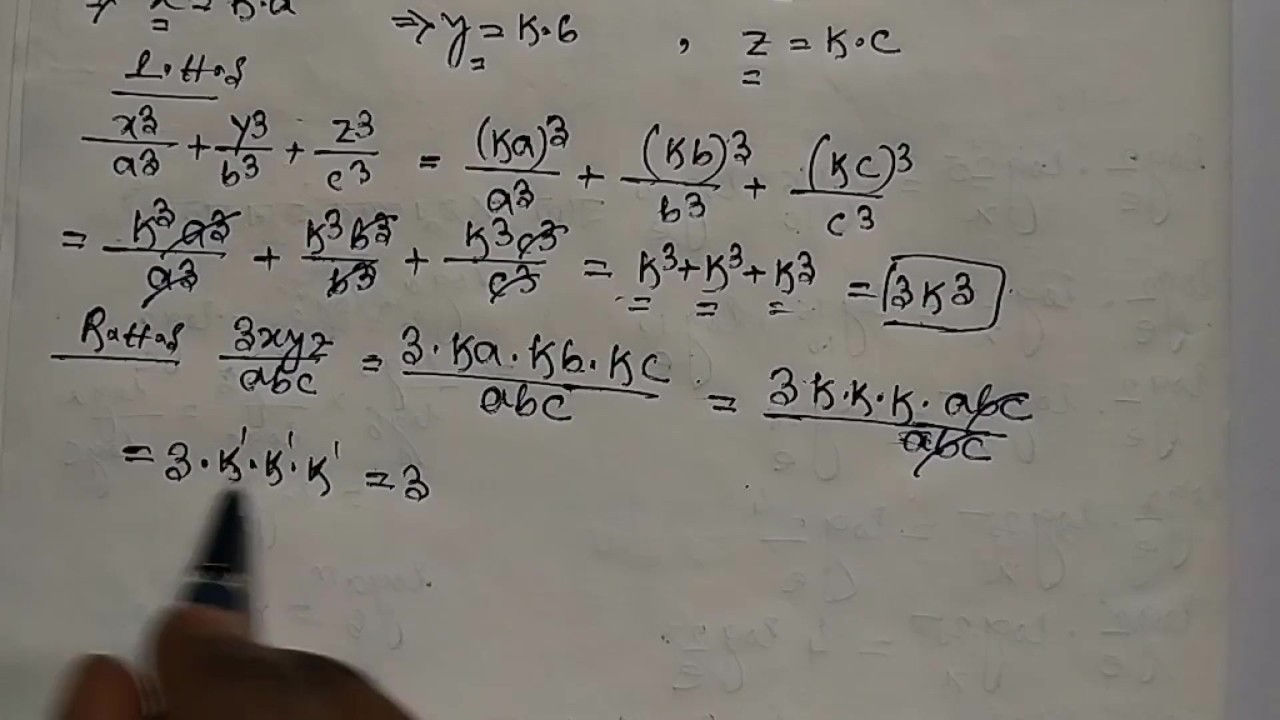 ⇒ x = K·a ⇒ y = K·b , z = K·c
L.H.S
x³/a³ + y³/b³ + z³/c³ = (Ka)³/a³ + (Kb)³/b³ + (Kc)³/c³
= K³a³/a³ + K³b³/b³ + K³c³/c³ = K³+K³+K³ = 3K³
R.H.S 3xyz/abc = 3·Ka·Kb·Kc/abc = 3·K·K·K·abc/abc
= 3·K¹·K¹·K¹ = 3